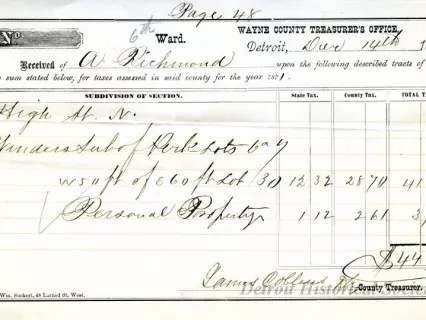 Page 48
No 6th Ward. WAYNE COUNTY TREASURER'S OFFICE,
Detroit, Dec 14th 1
Received of A Richmond upon the following described tracts of
sum stated below, for taxes assessed in said county for the year 1871.
SUBDIVISION OF SECTION. State Tax. County Tax. TOTAL T
High St. N.
Sub of Park Lots 6 & 7
W 50 ft of E 60 ft Lot 30 12 32 28 70 41
Personal Property 1 12 2 61 3
$44
James Collins
County Treasurer.
Wm. Suckert, 48 Larned St. West.
Detroit Historical Society